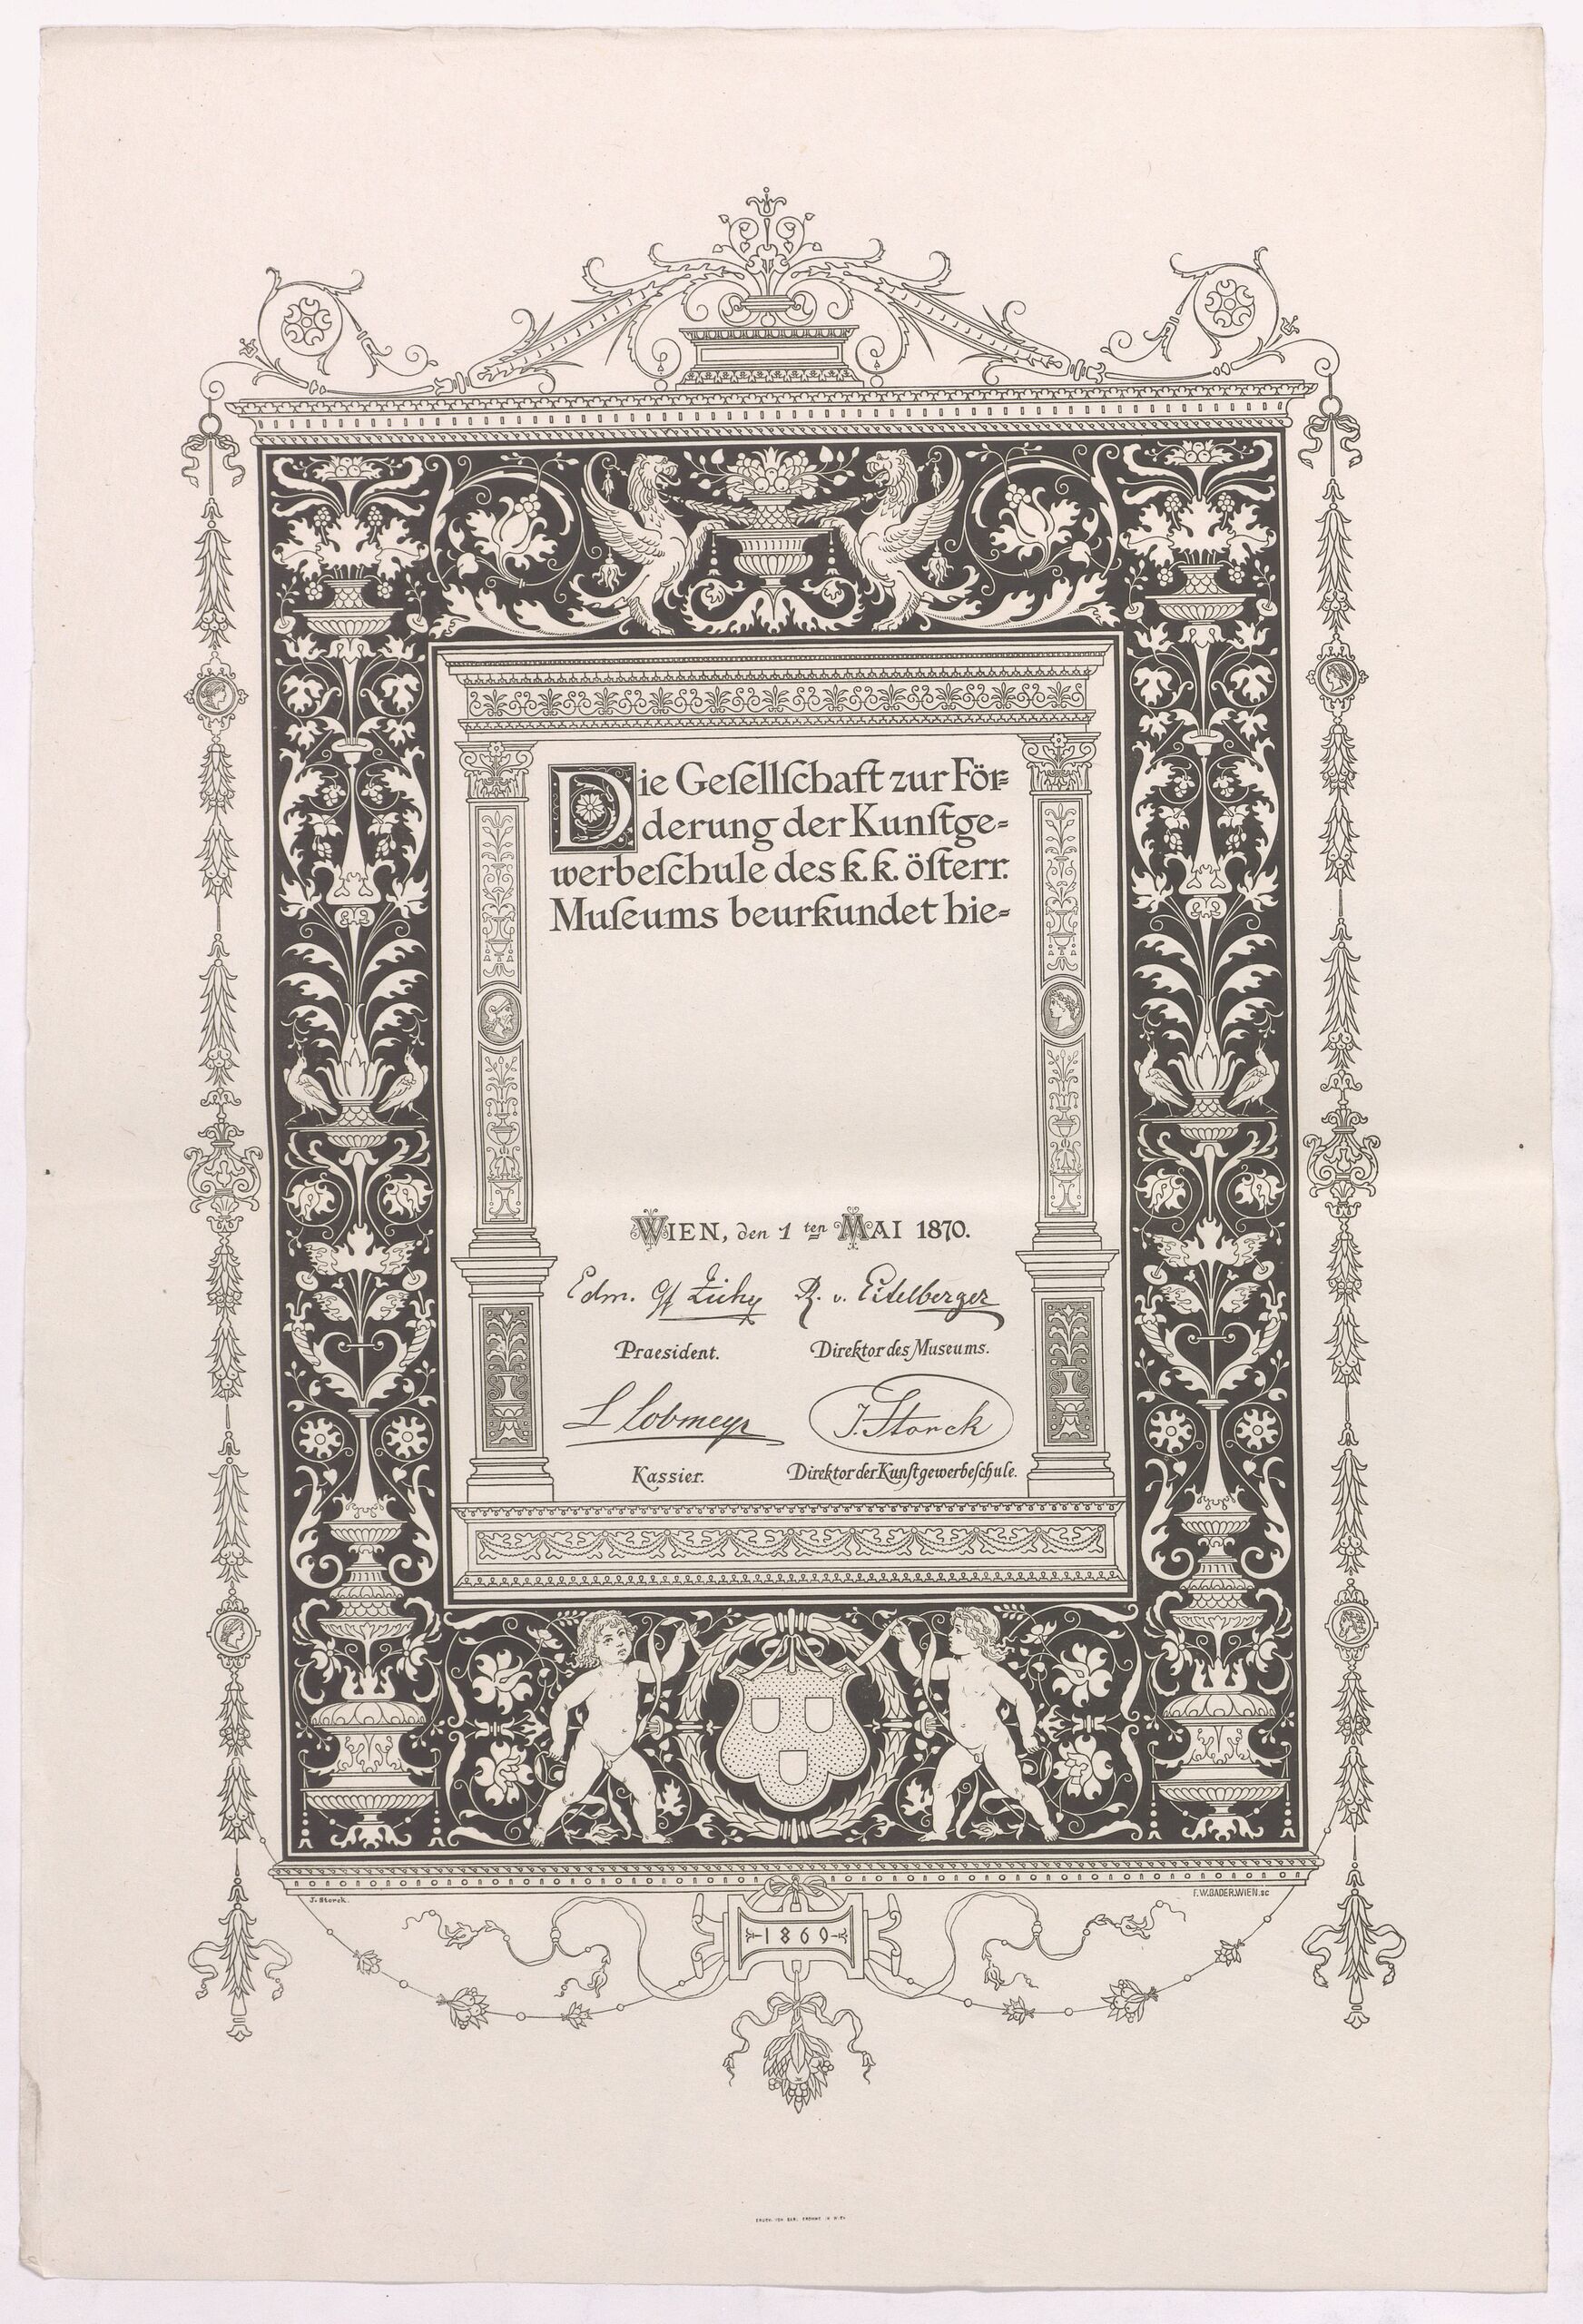 Die Geſellſchaft zur För⸗
derung der Kunſtge⸗
werbeſchule des k. k. öſterr.
Muſeums beurkundet hie⸗
WIEN, den 1ten MAI 1870.
Edm. Gf Zichy R. v. Eitelberger
Praesident. Direktor des Museums.
L Lobmeyr J. Storck
Kassier. Direktor der Kunſtgewerbeſchule.
J. Storck. F.W.BADER.WIEN.sc
1869
DRUCK VON CARL FROMME IN WIEN